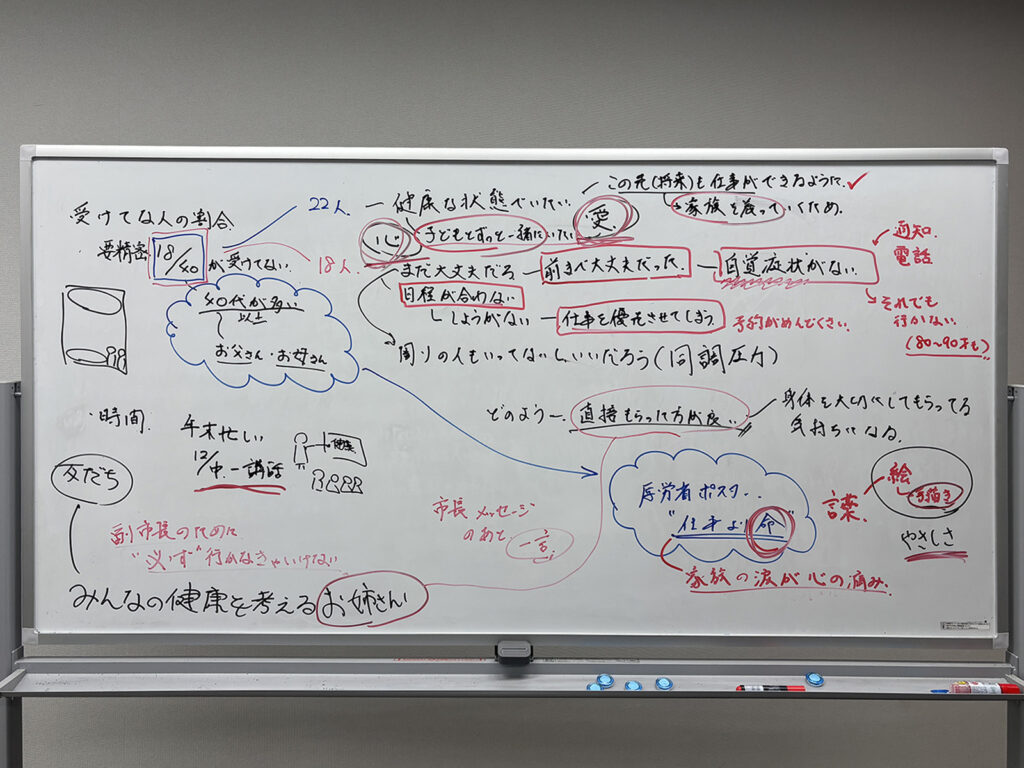 受けてな人の割合.
要精密 18/40 が受けてない.
22人.
18人.
40代が多い
以上
お父さん・お母さん
ー 健康な状態でいたい.
心
子どもとずっと一緒にいたい
愛
この先(将来)も仕事ができるように.✓
家族を守っていくため.
まだ大丈夫だろ ー 前まで大丈夫だった. ー 自覚症状がない.
通知.
電話
日程が合わない
しょうがない ー 仕事を優先させてしまう.
予約がめんどくさい.
それでも
行かない.
(80〜90才も)
周りの人もいってないしいいだろう(同調圧力)
どのよう ー 直接もらった方が良い.
身体を大切にしてもらってる
気持ちになる.
・時間.
年末忙しい
12/中 ー 講話
健康
友だち
副市長のために
"必ず"行かなきゃいけない
みんなの健康を考えるお姉さん
市長メッセージ
のあと 一言.
厚労省ポスター..
"仕事より命"
家族の涙が心の痛み.
言葉.
絵
手描き
やさしさ